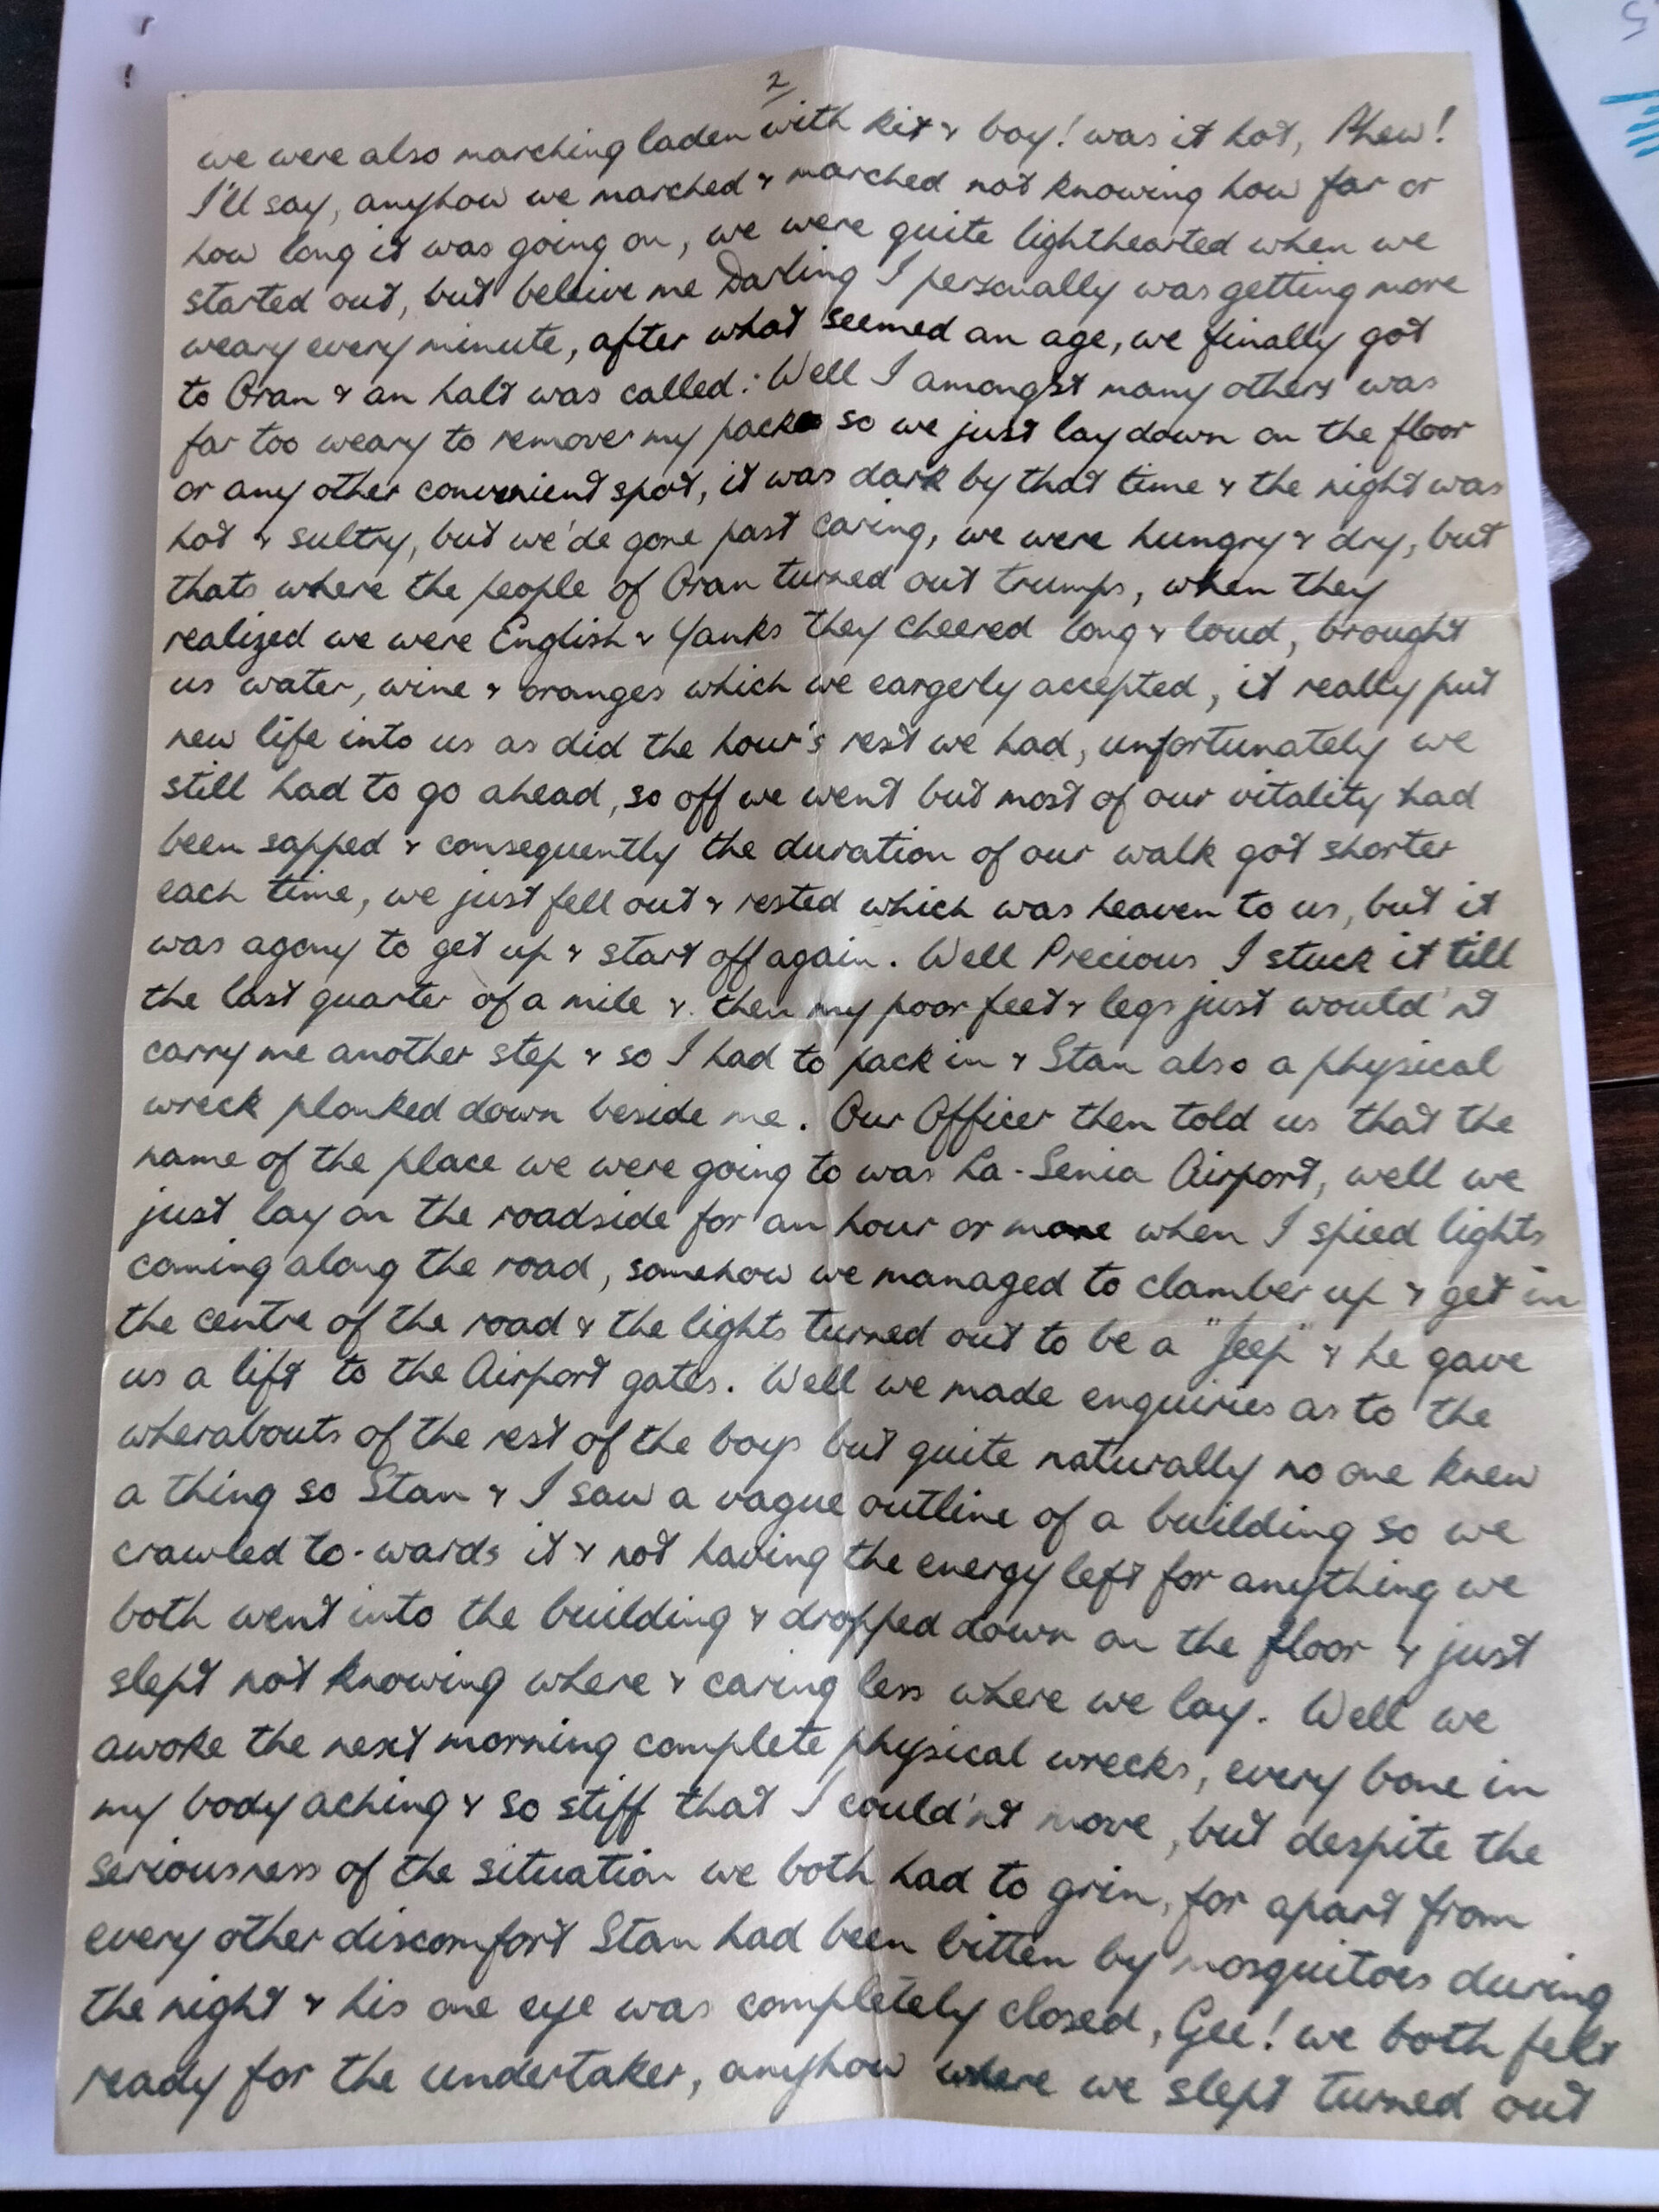 2/
we were also marching laden with kit & boy! was it hot, Phew!
I'll say, anyhow we marched & marched not knowing how far or
how long it was going on, we were quite lighthearted when we
started out, but beleive me Darling I personally was getting more
weary every minute, after what seemed an age, we finally got
to Oran & an halt was called: Well I amongst many others was
far too weary to remove my pack so we just lay down on the floor
or any other convenient spot, it was dark by that time & the night was
hot & sultry, but we'de gone past caring, we were hungry & dry, but
thats where the people of Oran turned out trumps, when they
realized we were English & Yanks they cheered long & loud, brought
us water, wine & oranges which we eargerly accepted, it really put
new life into us as did the hour's rest we had, unfortunately we
still had to go ahead, so off we went but most of our vitality had
been sapped & consequently the duration of our walk got shorter
each time, we just fell out & rested which was heaven to us, but it
was agony to get up & start off again. Well Precious I stuck it till
the last quarter of a mile & then my poor feet & legs just would'nt
carry me another step & so I had to pack in & Stan also a physical
wreck plonked down beside me. Our Officer then told us that the
name of the place we were going to was La-Senia Airport, well we
just lay on the roadside for an hour or more when I spied lights
coming along the road, somehow we managed to clamber up & get in
the centre of the road & the lights turned out to be a "Jeep" & he gave
us a lift to the Airport gates. Well we made enquiries as to the
wherabouts of the rest of the boys but quite naturally no one knew
a thing so Stan & I saw a vague outline of a building so we
crawled to-wards it & not having the energy left for anything we
both went into the building & dropped down on the floor & just
slept not knowing where & caring less where we lay. Well we
awoke the next morning complete physical wrecks, every bone in
my body aching & so stiff that I could'nt move, but despite the
seriousness of the situation we both had to grin, for apart from
every other discomfort Stan had been bitten by mosquitoes during
the night & his one eye was completely closed, Gee! we both felt
ready for the undertaker, anyhow where we slept turned out